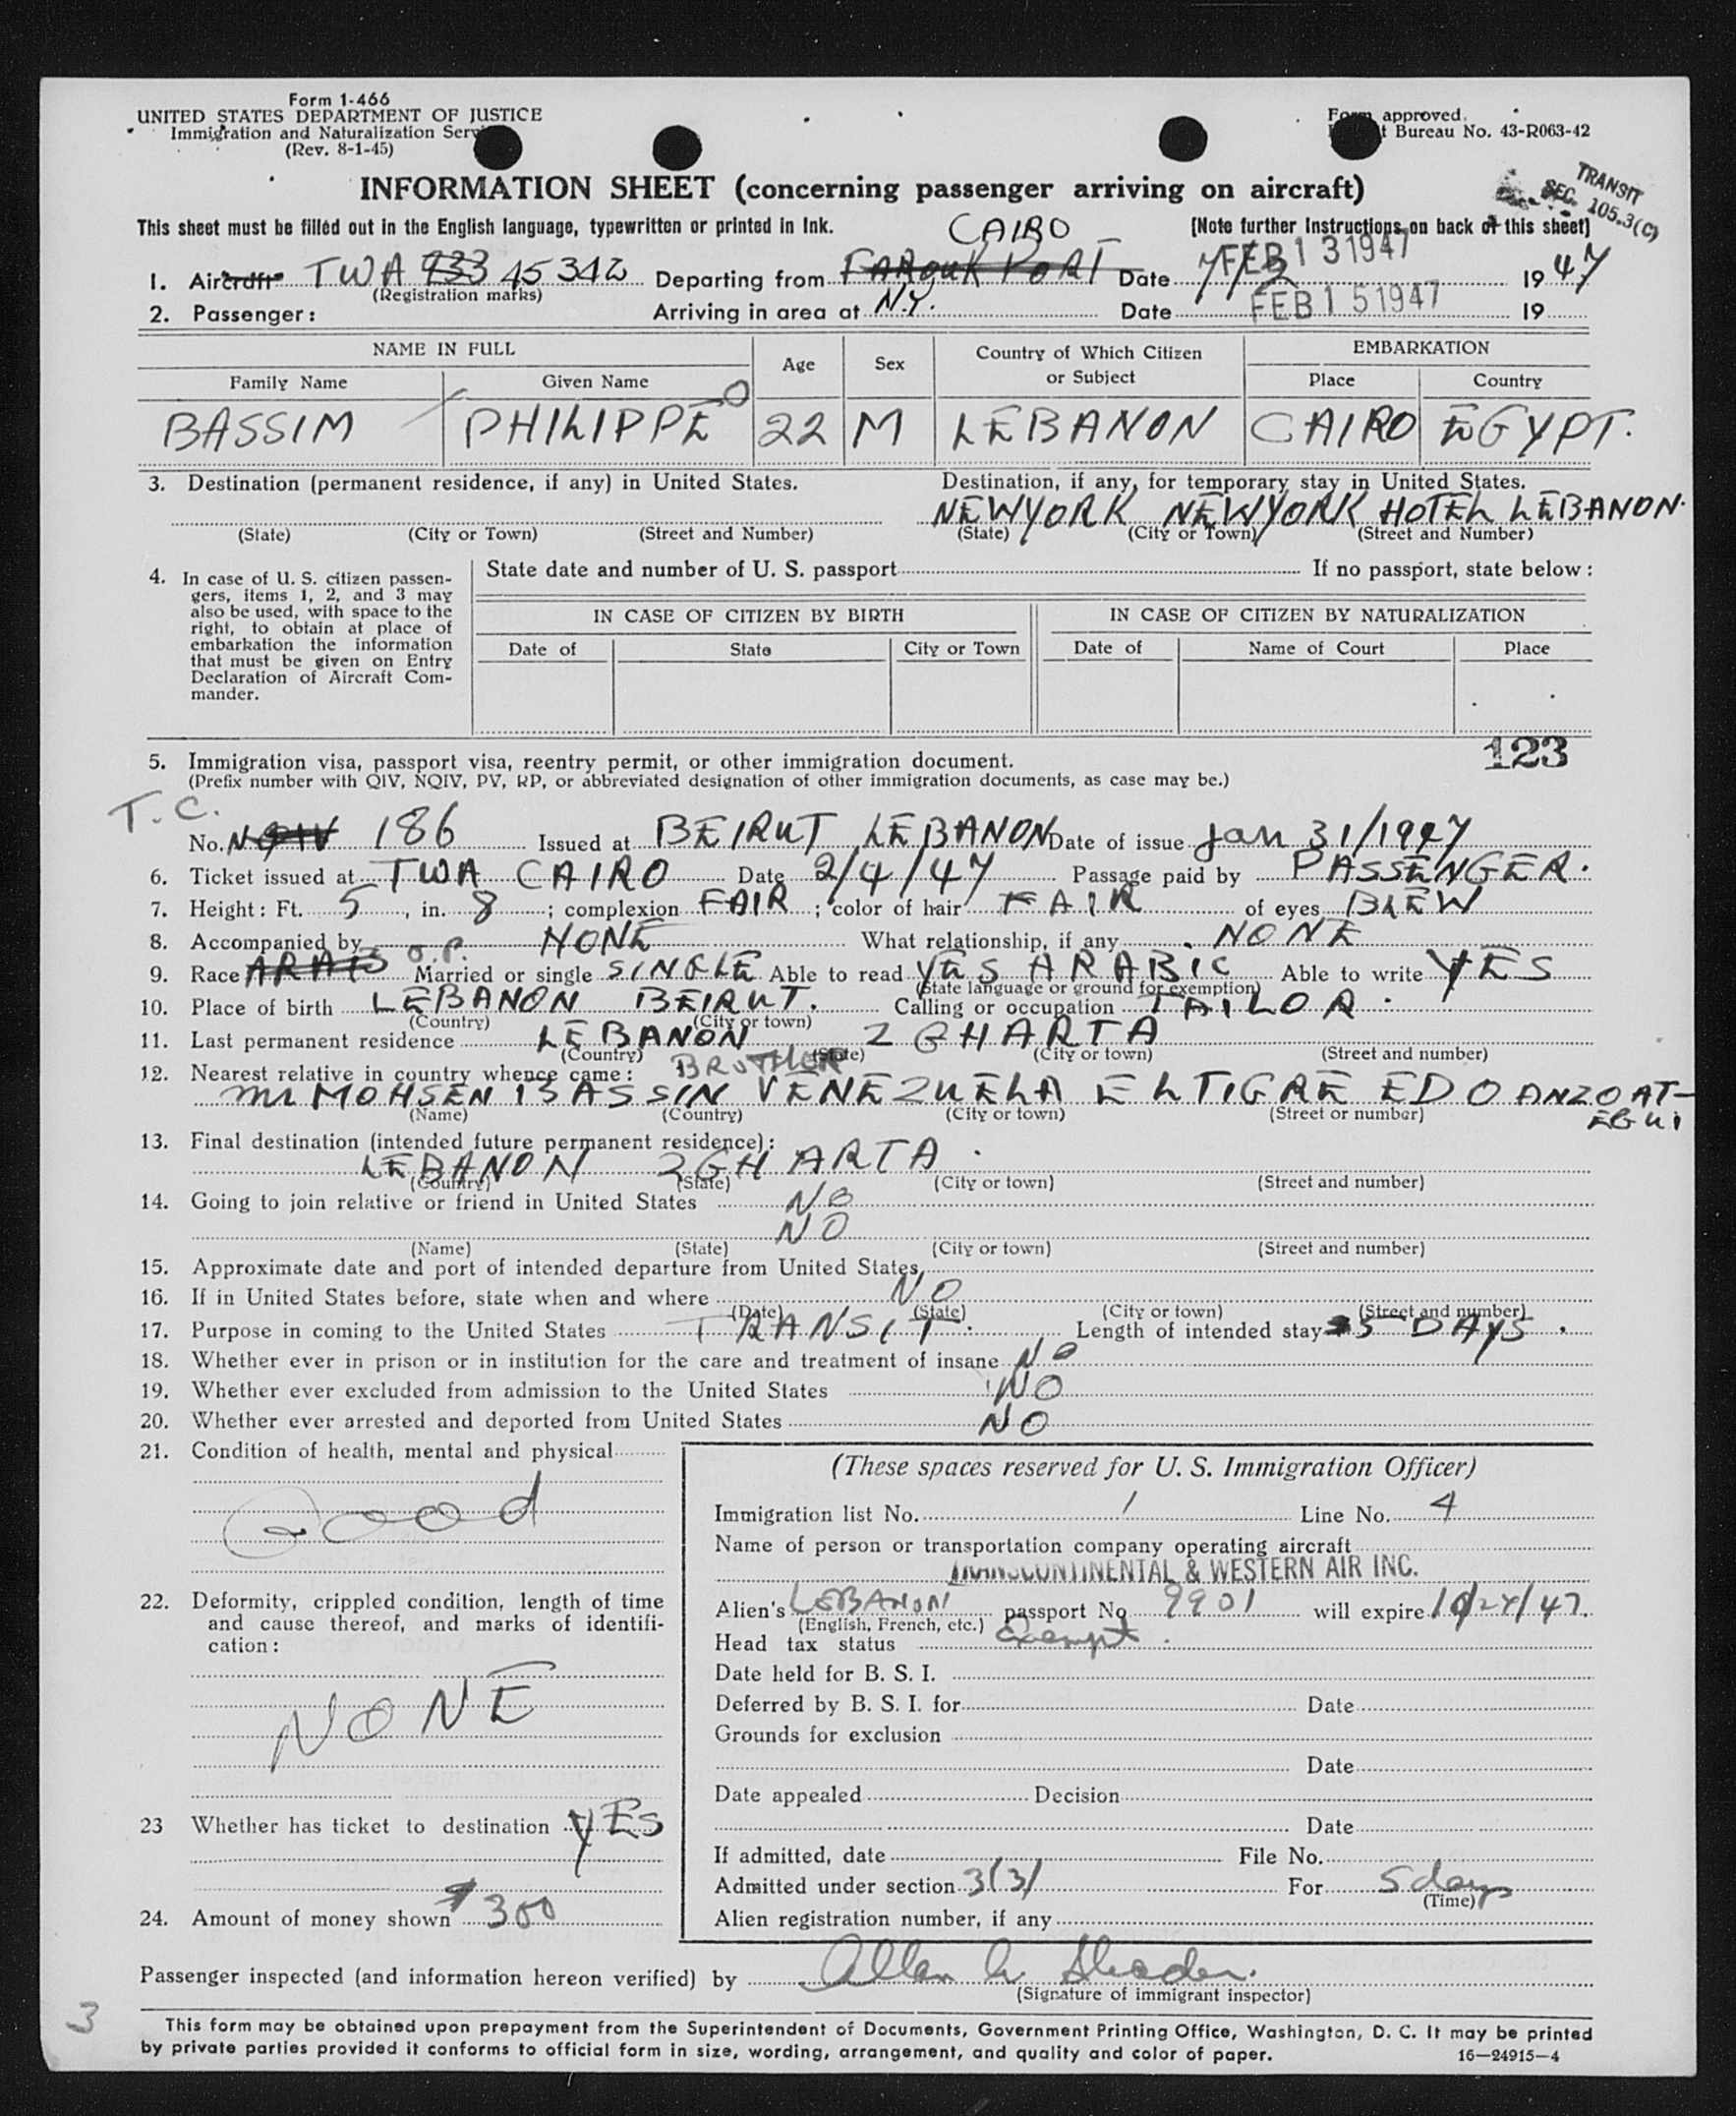 Form I-466
UNITED STATES DEPARTMENT OF JUSTICE
Immigration and Naturalization
(Rev. 8-1-45)
Form approved.
Bureau No. 43-R063-42
INFORMATION SHEET (concerning passenger arriving on aircraft)
TRANSIT
SEC. 105.3(C)
This sheet must be filled out in the English language, typewritten or printed in ink.
[Note further Instructions on back of this sheet]
CAIRO
FEB 13 1947
1. Aircraft TWA 933 45342 Departing from FAROUK PORT Date 1947
(Registration marks)
2. Passenger: Arriving in area at N.Y. Date FEB 15 1947 19
NAME IN FULL Age Sex Country of Which Citizen or Subject EMBARKATION
Family Name Given Name Place Country
BASSIM PHILIPPE O 22 M LEBANON CAIRO EGYPT.
3. Destination (permanent residence, if any) in United States. Destination, if any, for temporary stay in United States.
NEWYORK NEWYORK HOTEL LEBANON.
(State) (City or Town) (Street and Number) (State) (City or Town) (Street and Number)
4. In case of U. S. citizen passen-
gers, items 1, 2, and 3 may
also be used, with space to the
right, to obtain at place of
embarkation the information
that must be given on Entry
Declaration of Aircraft Com-
mander.
State date and number of U. S. passport If no passport, state below:
IN CASE OF CITIZEN BY BIRTH IN CASE OF CITIZEN BY NATURALIZATION
Date of State City or Town Date of Name of Court Place
123
5. Immigration visa, passport visa, reentry permit, or other immigration document.
(Prefix number with QIV, NQIV, PV, RP, or abbreviated designation of other immigration documents, as case may be.)
T.C.
No. NQIV 186 Issued at BEIRUT LEBANON Date of issue Jan 31/1947
6. Ticket issued at TWA CAIRO Date 2/4/47 Passage paid by PASSENGER.
7. Height: Ft. 5, in. 8; complexion FAIR; color of hair FAIR of eyes BLEW
8. Accompanied by NONE What relationship, if any NONE
9. Race ARAB O.P. Married or single SINGLE Able to read YES ARABIC Able to write YES
(State language or ground for exemption)
10. Place of birth LEBANON BEIRUT. Calling or occupation TAILOR.
(Country) (City or town)
11. Last permanent residence LEBANON ZGHARTA
(Country) (State) (City or town) (Street and number)
12. Nearest relative in country whence came: BROTHER
Mr MOHSEN BASSIN VENEZUELA ELTIGRE EDO ANZOAT-
EGUI
(Name) (Country) (City or town) (Street or number)
13. Final destination (intended future permanent residence):
LEBANON ZGHARTA.
(Country) (State) (City or town) (Street and number)
14. Going to join relative or friend in United States NO
NO
(Name) (State) (City or town) (Street and number)
15. Approximate date and port of intended departure from United States
16. If in United States before, state when and where NO
(Date) (State) (City or town) (Street and number)
17. Purpose in coming to the United States TRANSIT. Length of intended stay 5 DAYS.
18. Whether ever in prison or in institution for the care and treatment of insane NO
19. Whether ever excluded from admission to the United States NO
20. Whether ever arrested and deported from United States NO
21. Condition of health, mental and physical
Good
22. Deformity, crippled condition, length of time
and cause thereof, and marks of identifi-
cation:
NONE
23 Whether has ticket to destination YES
24. Amount of money shown $300
(These spaces reserved for U. S. Immigration Officer)
Immigration list No. 1 Line No. 4
Name of person or transportation company operating aircraft
TRANSCONTINENTAL & WESTERN AIR INC.
Alien's LEBANON passport No 9901 will expire 10/24/47.
(English, French, etc.)
Head tax status Exempt.
Date held for B. S. I.
Deferred by B. S. I. for Date
Grounds for exclusion
Date
Date appealed Decision
Date
If admitted, date File No.
Admitted under section 3(3) For 5 days
(Time)
Alien registration number, if any
Passenger inspected (and information hereon verified) by Allan
(Signature of immigrant inspector)
3
This form may be obtained upon prepayment from the Superintendent of Documents, Government Printing Office, Washington, D. C. It may be printed
by private parties provided it conforms to official form in size, wording, arrangement, and quality and color of paper.
16—24915-4